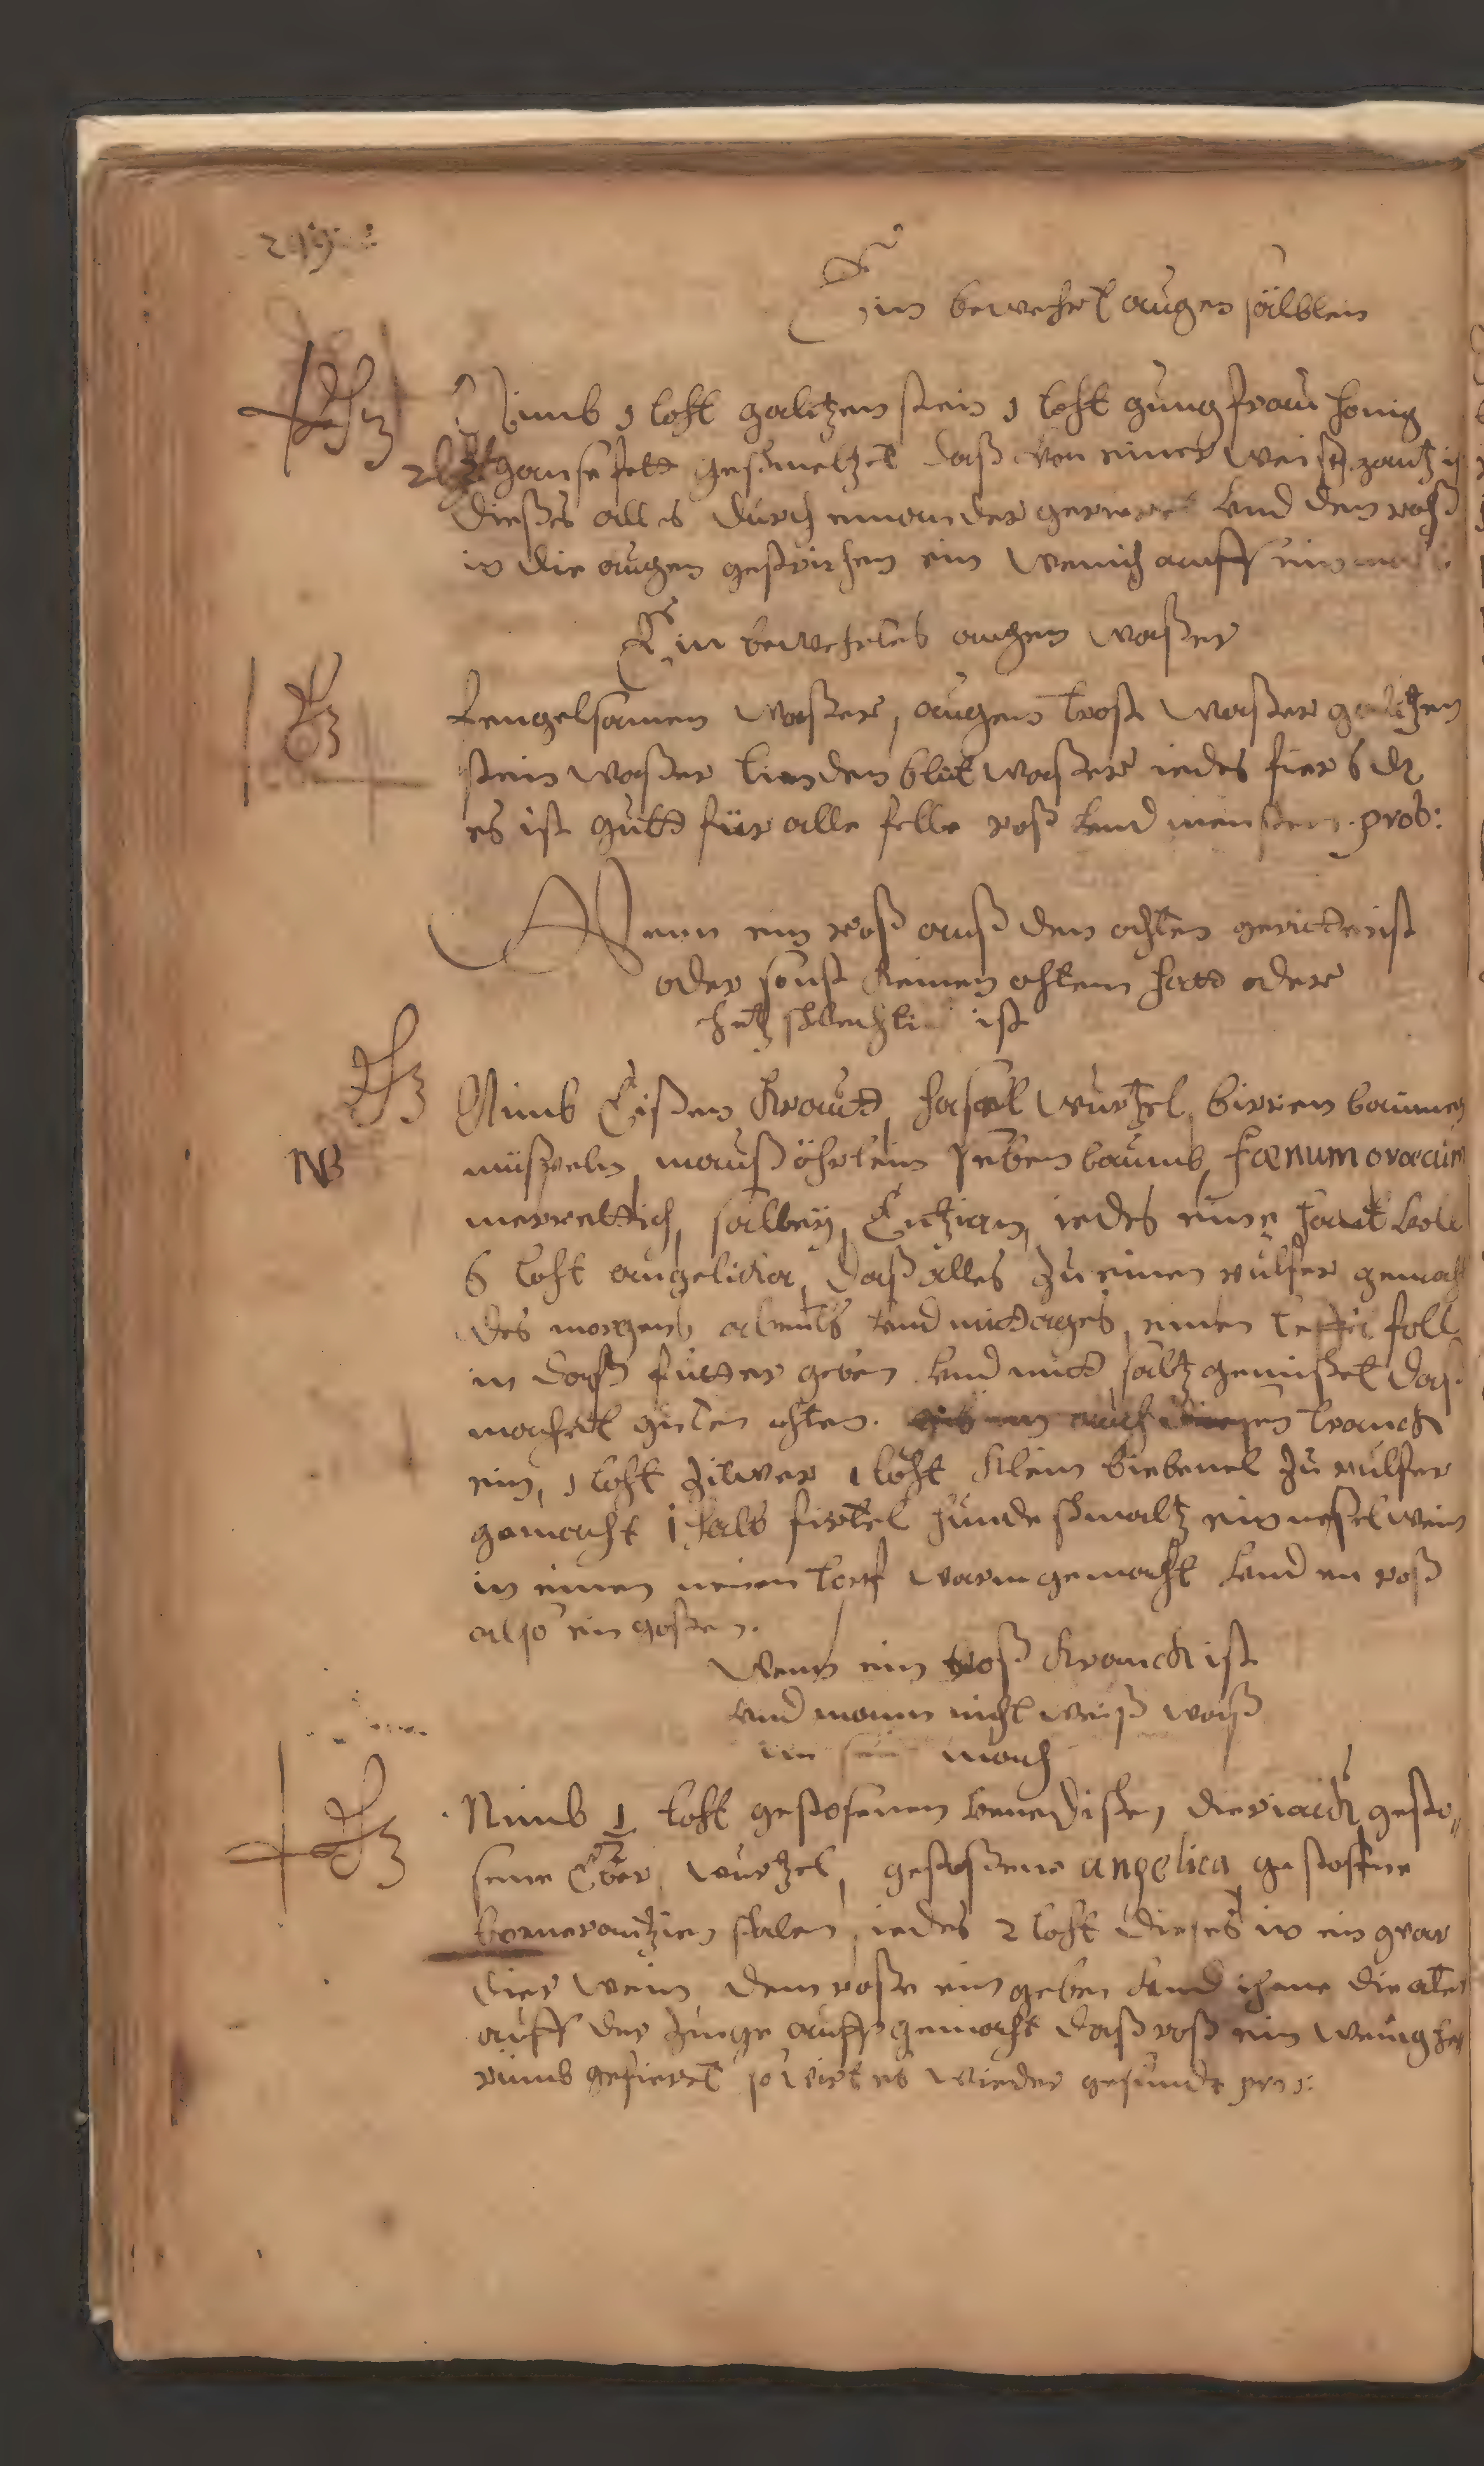 299
Ein bewehrt augen sälblein
Nimb 1 loht galitzen stein 1 loht gungfrau honig
2 lht gansefett geschmeltzet daß von einer weißen ganß ist
dießes alles durch einander gerieret vnd den roß
in die augen gestrichen ein wenich auff einmall
Ein bewehrtes augen waßer
Fengelsamen waßer, augen trost waßer galitzen
stein waßer linden blüt waßer iedes fier 6 dz
es ist gutt für alle felle roß vnd menschen prob:
Wenn ein roß auß den ahten geritten ist
oder sonst keinen ahtem hatt oder
hertz schlechtig ist
NB
Nimb Eißen kraut, hasel wurtzel, birren baumen
müspeln, maußöhrlein seben baumb, fœnumgræcum
merrettich, salbey, Entzian, iedes eine hant voll
6 loht angelicka, daß alles zu einen pulfer gemacht
des morgens abents vnd mittages, einen leffel foll
in daß futter geben vnd mitt saltz gemischet daß
machet guten ahten. gib im auch diesen tranck
ein, 1 loht zitwer 1 loht klein biebenel zu pulfer
gemacht 1 halb firtel hunde schmaltz ein nesel wein
in einen neuen topf warm gemacht vnd en roß
also ein goßen.
Wenn ein roß kranck ist
vnd mann nicht weiß waß
im sein mach
Nimb 1/2 loht gestosenen venedischen dieriack gesto„
sene Eber wurtzel, gestoßene angelica gestosene
bomerantzien schalen, iedes 2 loht dieses in ein quar
tier wein dem roße ein geben vnd ihme die ater
auff der zunge auff gemacht daß roß ein wenig he
rumb gefieret so wirt es wieder gesundt pro: